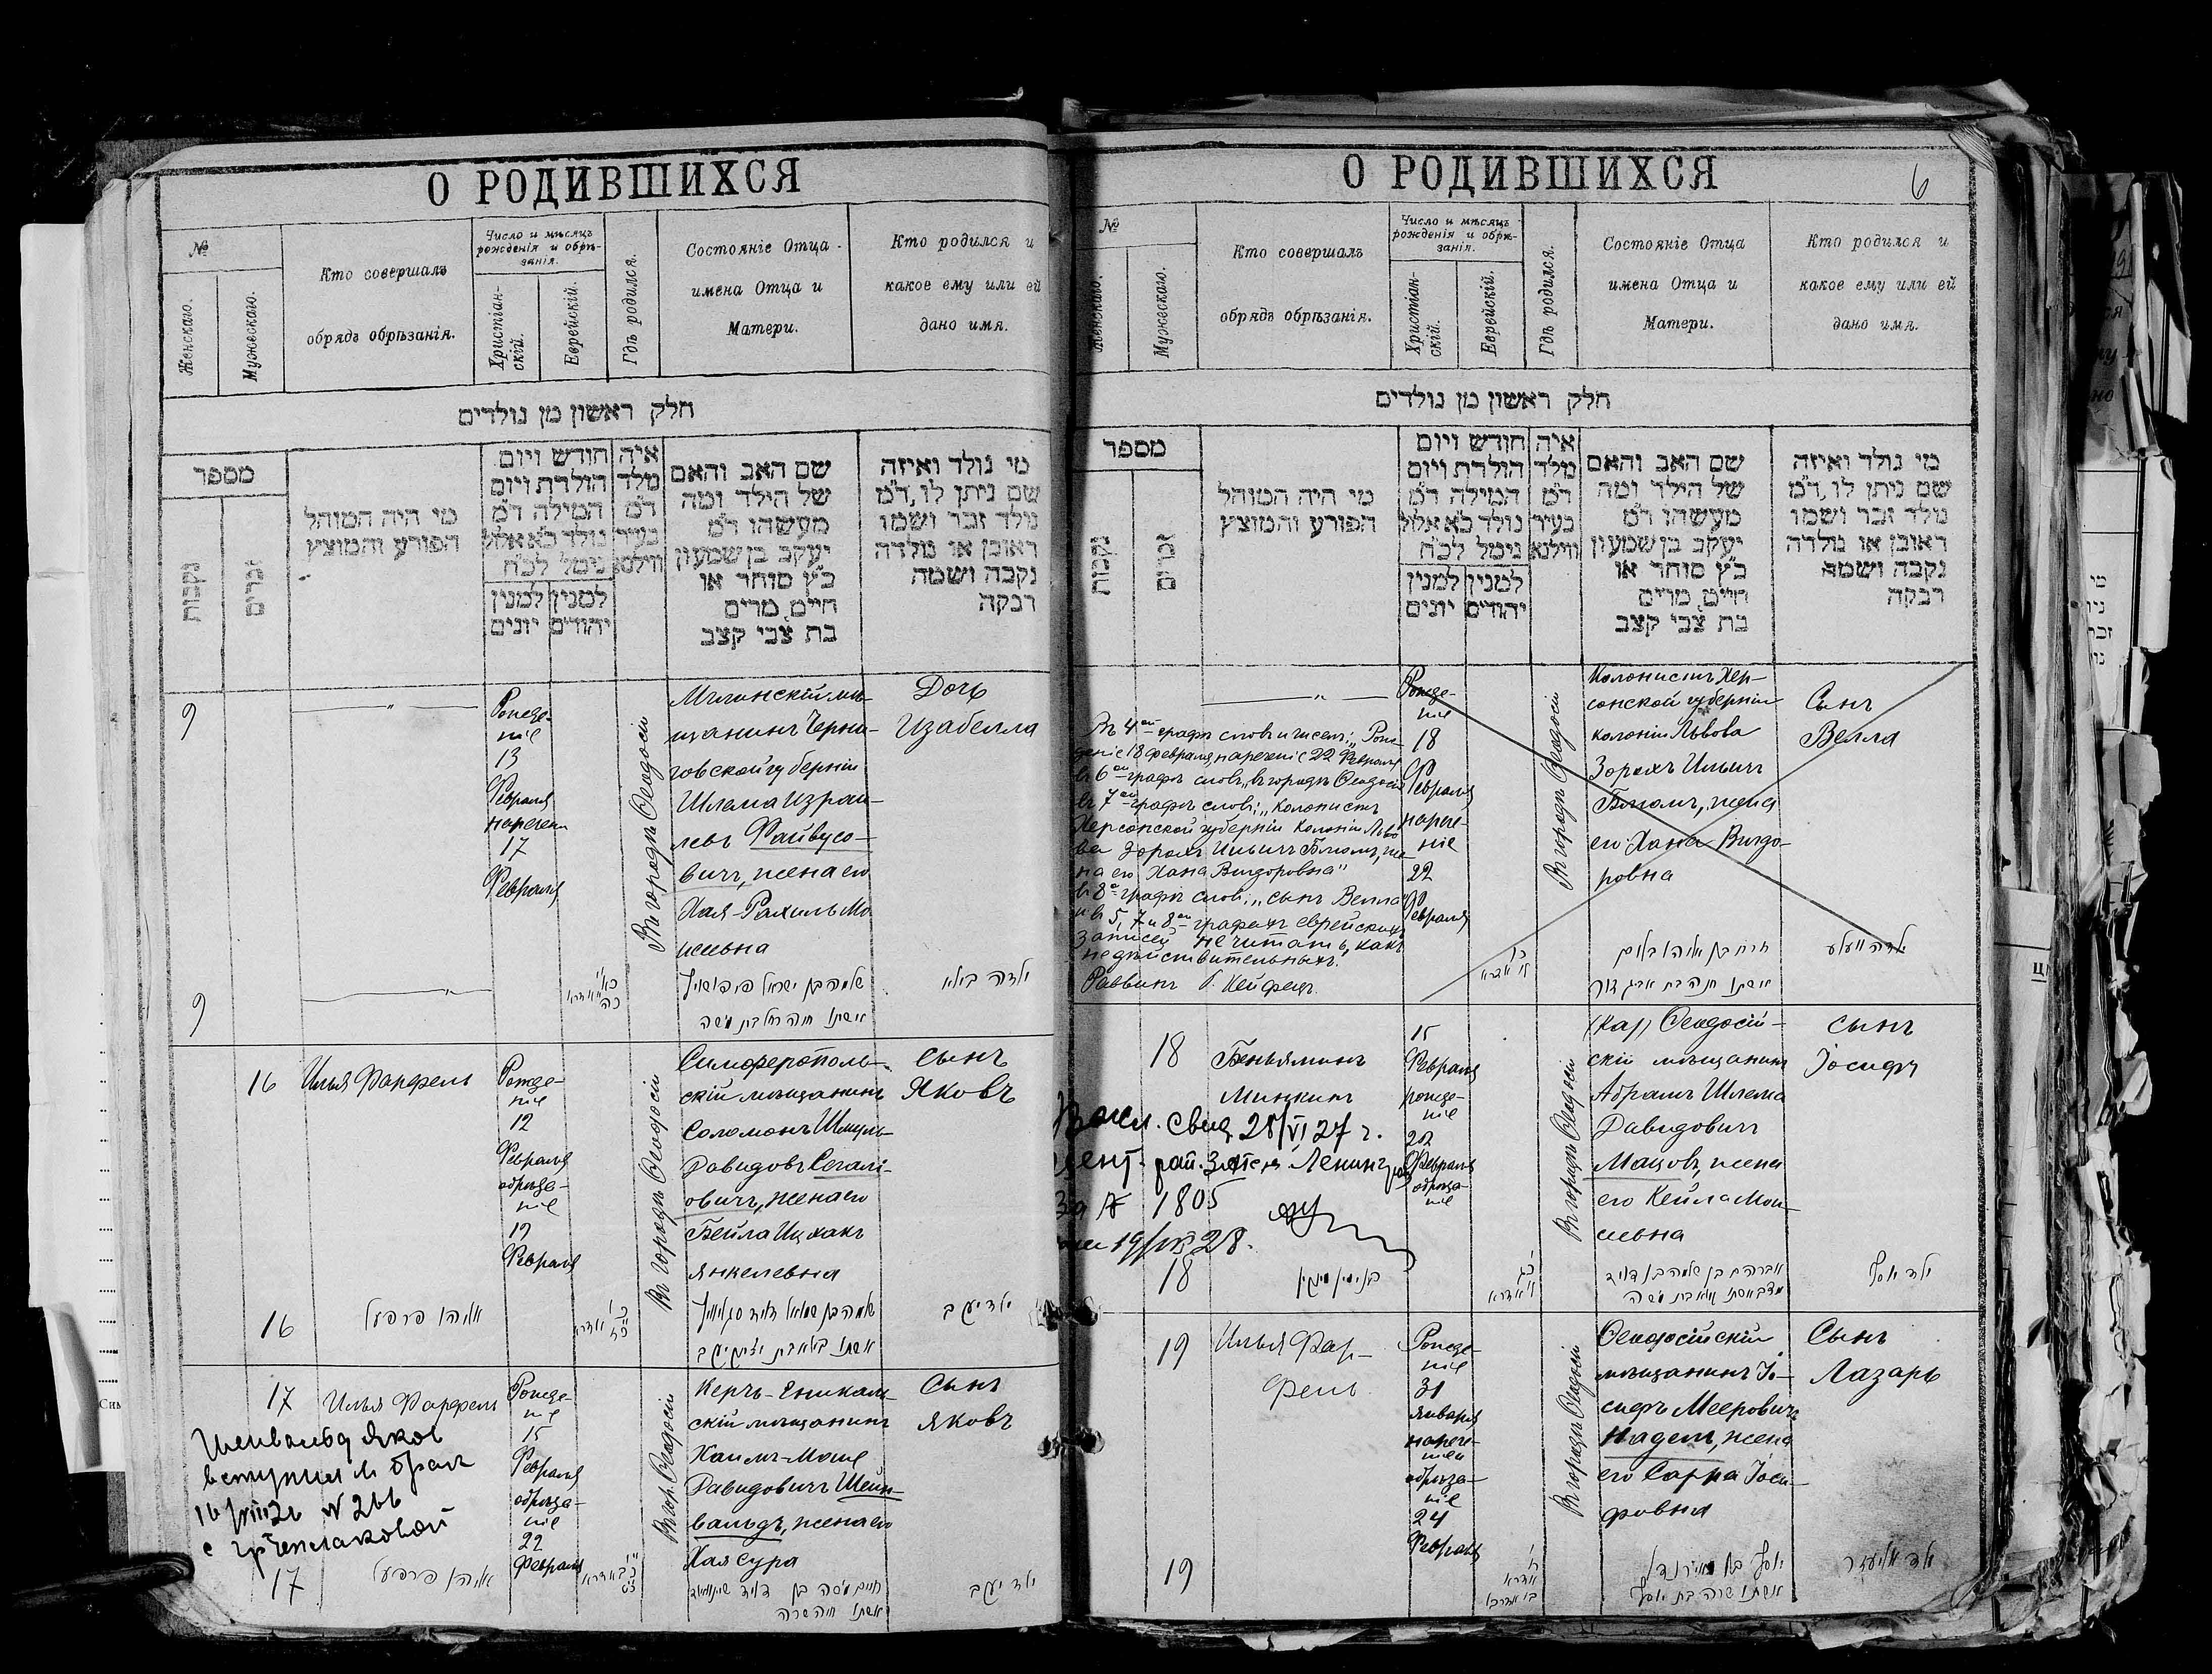 О РОДИВШИХСЯ
№
Женскаго.
Мужескаго.
Кто совершалъ
обрядъ обрѣзанія.
Число и мѣсяцъ
рожденія и обрѣ-
занія.
Христіан-
скій.
Еврейскій.
Гдѣ родился.
Состояніе Отца
имена Отца и
Матери.
Кто родился и
какое ему или ей
дано имя.
חלק ראשון מן נולדים
מספר
נקבות
זכרים
מי היה המוהל
הפורע והמוצץ
חודש ויום
הולדת ויום
המילה ד״מ
נולד כ״א אלול
נימל לכ״ח
למנין למנין
יהודים יונים
איה
מלד
ד״מ
בעיר
ווילנא
שם האב והאם
של הילד ומה
מעשהו ד״מ
יעקב בן שמעון
כ״ץ סוחר או
חיים מרים
בת צבי קצב
מי נולד ואיזה
שם ניתן לו ד״מ
נולד זכר ושמו
ראובן או נולדה
נקבה ושמה
רבקה
9
Рожде-
ніе
13
Февраля
наречен
17
Февраля
Въ городѣ Ѳеодосіи
Мглинскій мѣ-
щанинъ Черни-
говской губерніи
Шлема Израи-
левъ Файвусо-
вичъ, жена его
Хая-Рахиль Мо
исеевна
Дочь
Изабелла
9
ילדה בילא
אשתו חיה רחל בת משה
16
Илья Фарфель
Рожде-
ніе
12
Февраля
обрѣза-
ніе
19
Февраля
Въ городѣ Ѳеодосіи
Симферополь-
скій мѣщанинъ
Соломонъ Шмуль-
Давидовъ Сегал-
овичъ, жена его
Бейла Ицхакъ
Янкелевна
сынъ
Яковъ
16
אליהו פרפעל
ילד יעקב
17
Илья Фарфель
Рожде-
ніе
15
Февраля
обрѣза-
ніе
22
Февраля
Въ гор. Ѳеодосіи
Керчь-Еникаль-
скій мѣщанинъ
Хаимъ-Моше
Давидовичъ Шейн-
вальдъ, жена его
Хая Сура
Сынъ
Яковъ
Шейвальд Яков
вступил в брак
16/VIII 26 № 266
с
17
אליהו פרפעל
אשתו חיה שרה
ילד יעקב
О РОДИВШИХСЯ
6
№
Женскаго.
Мужескаго.
Кто совершалъ
обрядъ обрѣзанія.
Число и мѣсяцъ
рожденія и обрѣ-
занія.
Христіан-
скій.
Еврейскій.
Гдѣ родился.
Состояніе Отца
имена Отца и
Матери.
Кто родился и
какое ему или ей
дано имя.
חלק ראשון מן נולדים
מספר
נקבות
זכרים
מי היה המוהל
הפורע והמוצץ
חודש ויום
הולדת ויום
המילה ד״מ
נולד כ״א אלול
נימל לכ״ח
למנין למנין
יהודים יונים
איה
מלד
ד״מ
בעיר
ווילנא
שם האב והאם
של הילד ומה
מעשהו ד״מ
יעקב בן שמעון
כ״ץ סוחר או
חיים מרים
בת צבי קצב
מי נולד ואיזה
שם ניתן לו ד״מ
נולד זכר ושמו
ראובן או נולדה
נקבה ושמה
רבקה
Въ 4ой графѣ словъ и чиселъ: „Рож-
деніе 18 февраля, нареченіе 22 Февраля
въ 6ой графѣ словъ „въ городѣ Ѳеодосіи
въ 7ой графѣ словъ: „Колонистъ
Херсонской губерніи Колоніи Льво
ва Зорахъ Ильичъ Блюмъ, же-
на его Хана Вигдоровна"
въ 8ой графѣ словъ: „сынъ Велла"
и въ 5, 7 и 8ой графахъ еврейскихъ
записей не читать, какъ
недѣйствительныхъ.
Раввинъ Б. Хейфецъ.
Рожде-
ніе
18
Февраля
нарече-
ніе
22
Февраля
Въ городѣ Ѳеодосіи
Колонистъ Хер-
сонской губерніи
колоніи Львова
Зорахъ Ильичъ
Блюмъ, жена
его Хана Вигдо-
ровна
Сынъ
Велла
אשתו חנה בת אביגדור
18
Беньяминъ
Минкинъ
15
Февраля
рожде-
ніе
22
Февраля
обрѣза-
ніе
Въ городѣ Ѳеодосіи
(Кар) Ѳеодосій-
скій мѣщанинъ
Абрамъ Шлема
Давидовичъ
Мацовъ, жена
его Кейла Мои-
сеевна
сынъ
Іосифъ
свид. 28/VI 27 г.
рай.
За № 1805
18
בנימין מינקין
אברהם בן שלמה בן דוד
ילד יוסף
19
Илья Фар-
фель
Рожде-
ніе
31
Января
обрѣза-
ніе
24
Февраля
Въ городѣ Ѳеодосіи
Ѳеодосійскій
мѣщанинъ Іо-
сифъ Мееровичъ
Надель, жена
его Сарра Іоси-
фовна
Сынъ
Лазарь
19
אשתו שרה בת יוסף
ילד אליעזר